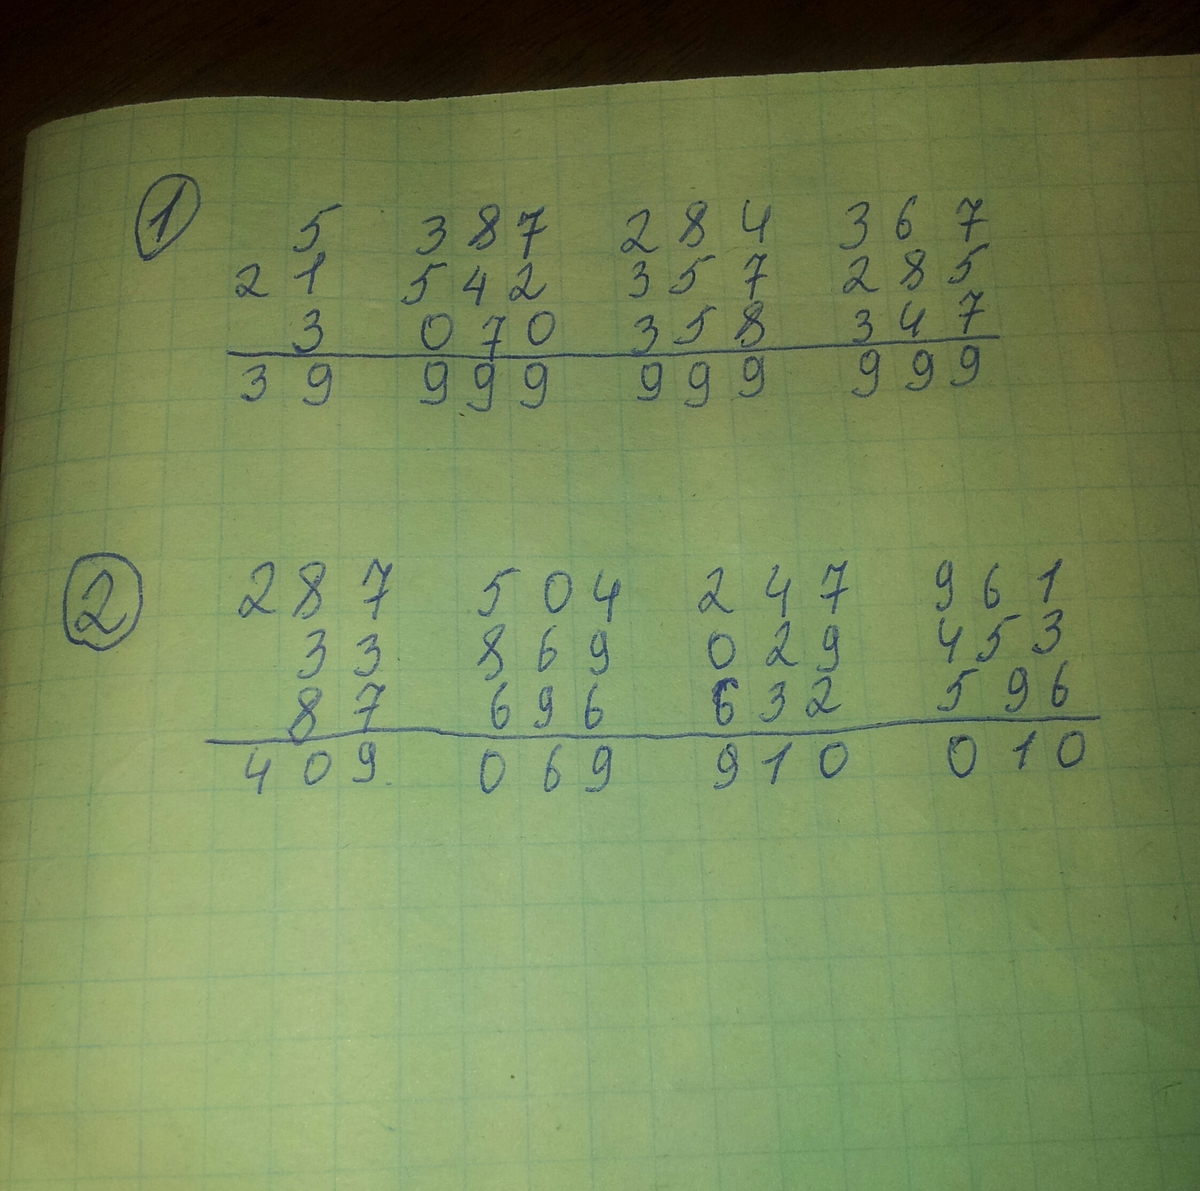 1 5 387 284 367
21 542 357 285
3 070 358 347
39 999 999 999
2 287 504 247 961
33 869 029 453
87 696 632 596
409 069 910 010